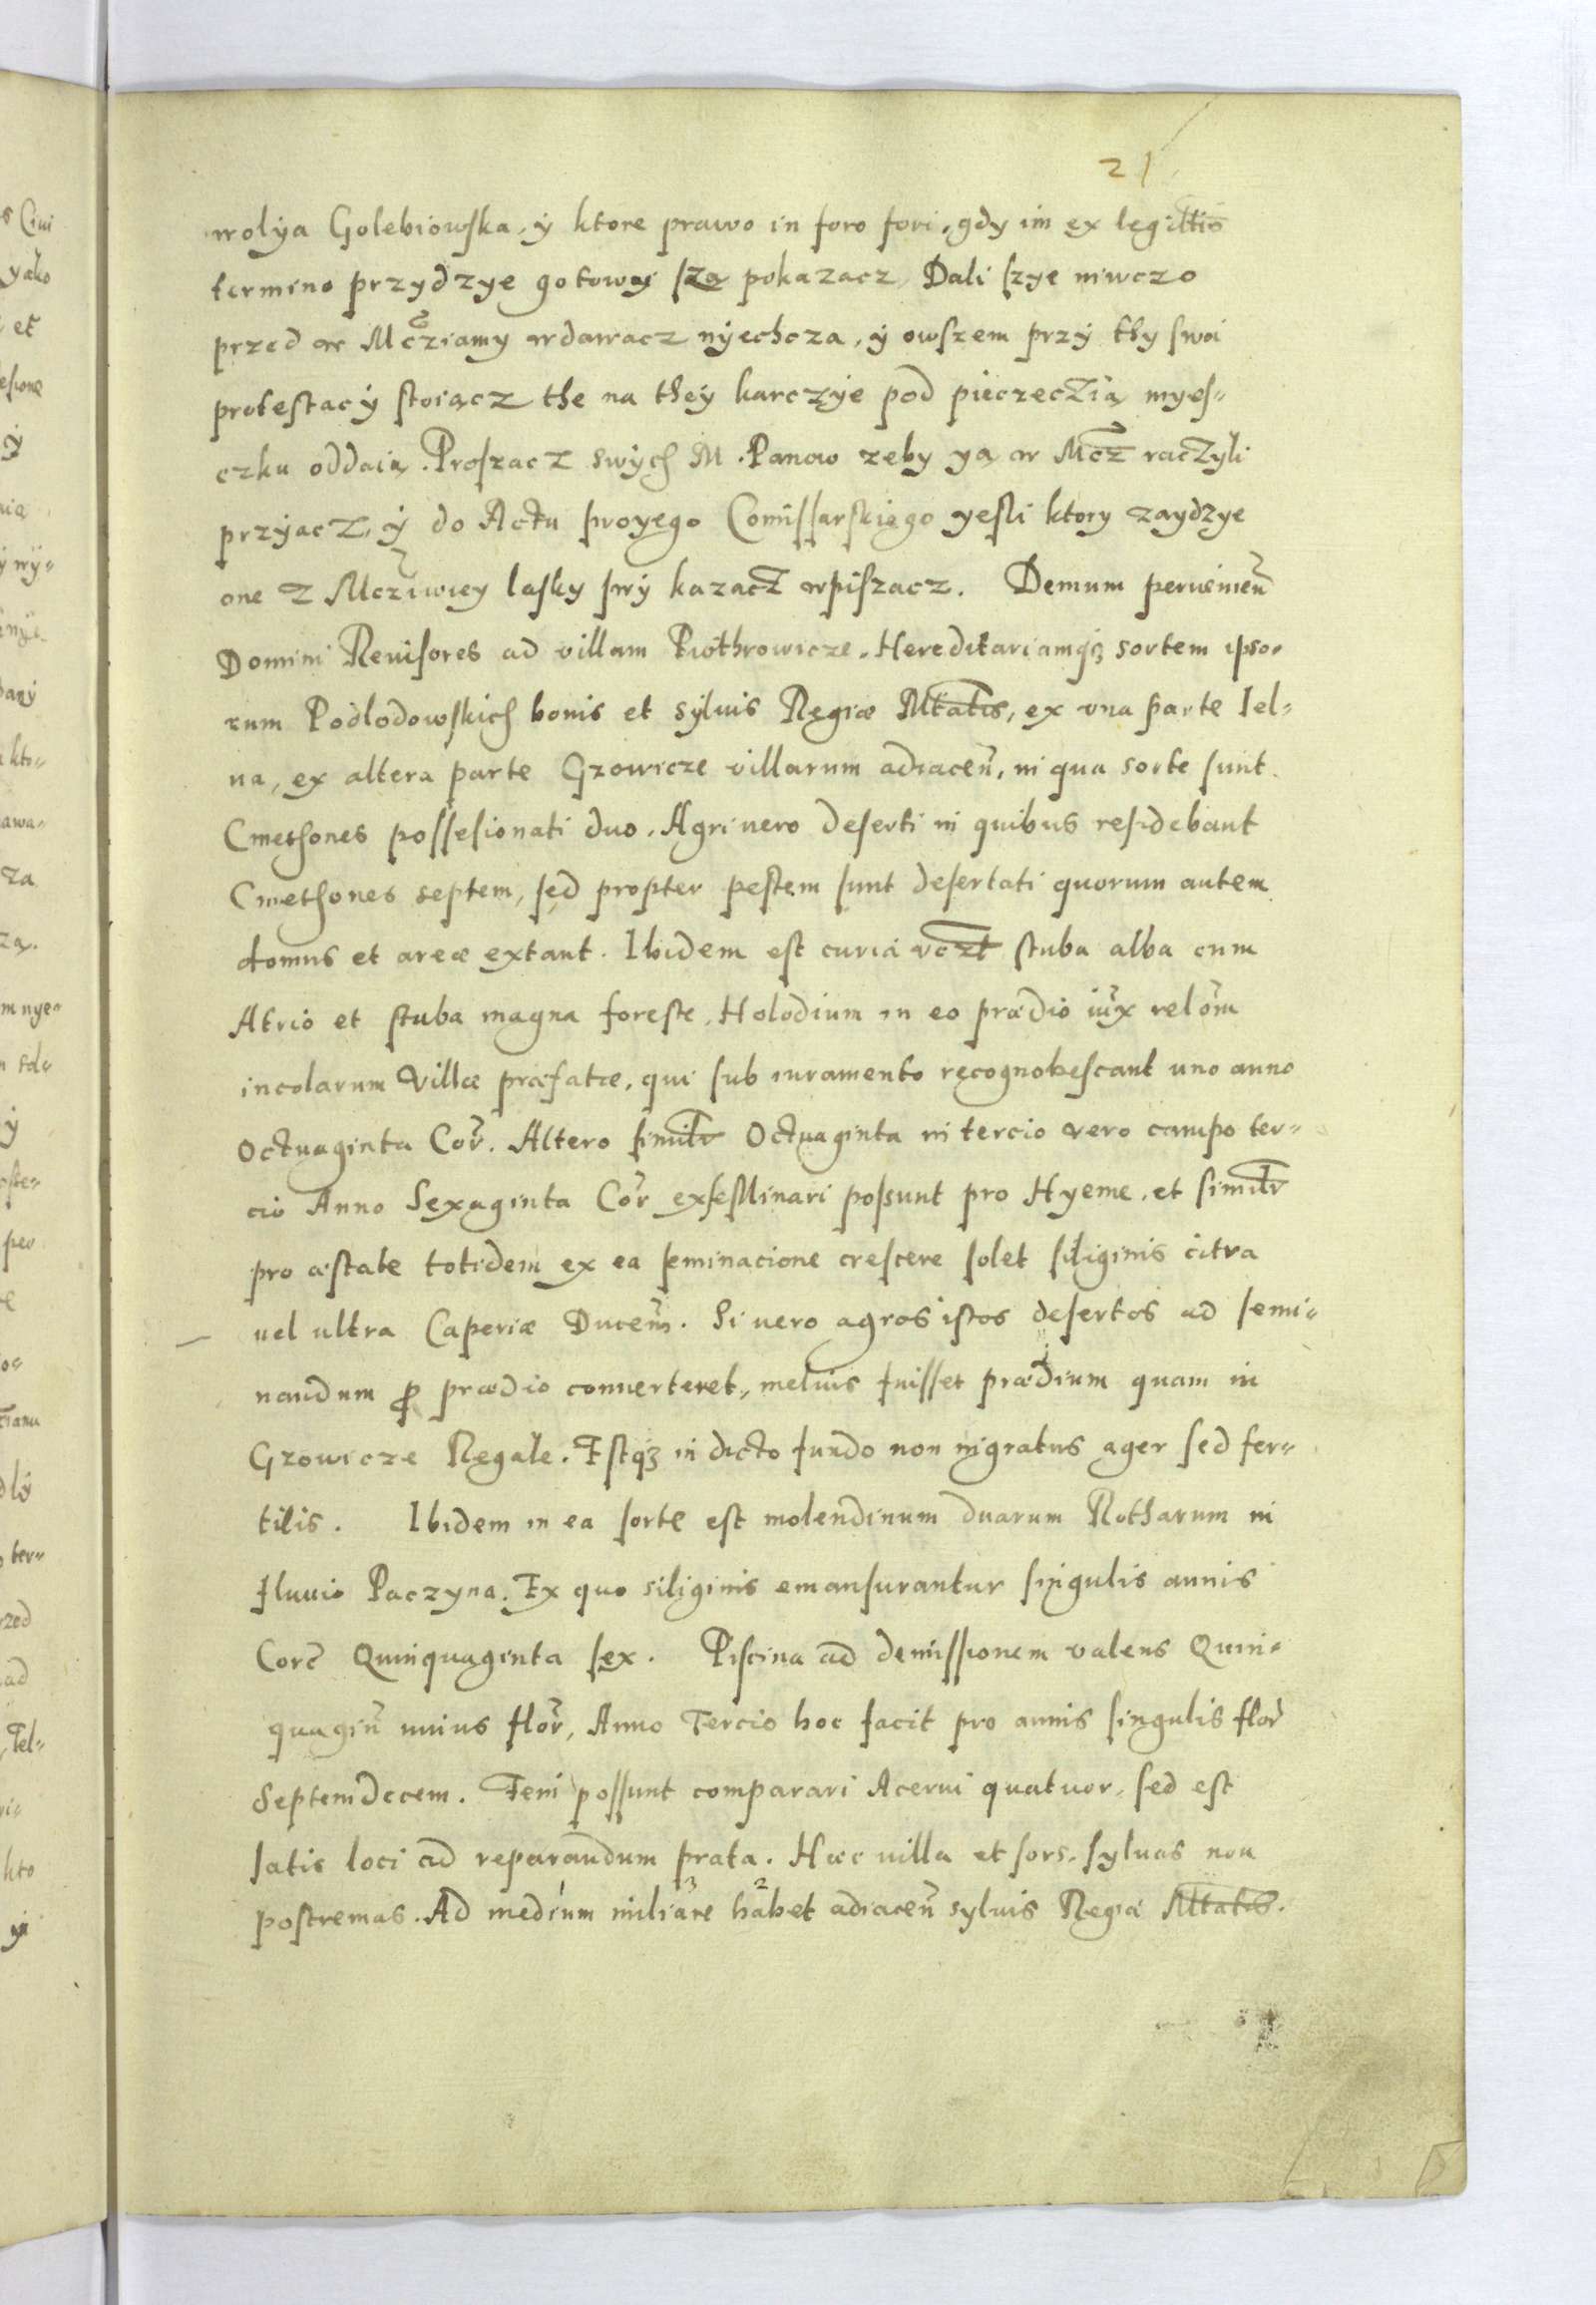 21
wolÿa Golebiowska, ÿ ktore prawo in foro fori, gdy im ex legittiō
termino przydzye gotowy sza pokazacz, Dali szye niwczo
przed w Mcziamy wdawacz nÿechcza, ÿ owszem przÿ thy swoi
protestacÿ stoiącz the na theÿ karczÿe pod pieczeczią myes-
czku oddaią. Proszacz swÿch M. Panow zeby yą w Mcz raczÿli
przÿącz, ÿ do Actu swoyego Comissarskiego yesli ktory zaydzye
one z Mcziwiey lasky swÿ kazacz wpiszacz. Demum perueniem̄
Domini Reuisores ad villam Piothrowicze, Hereditariamqʒ sortem ipso-
rum Podlodowskich bonis et sÿluis Regiæ Mtatis, ex vna parte Iel-
na, ex altera parte Gzowicze villarum adiacen̄, in qua sorte sunt
Cmethones possesionati duo. Agri uero deserti in quibus residebant
Cmethones septem, sed propter pestem sunt desertati quorum autem
domus et areæ extant. Ibidem est curia vczt stuba alba cum
Atrio et stuba magna foreste, Holodium in eo prædio iux̄ relōm
incolarum Villæ præfatæ, qui sub iuramento recognobescant uno anno
Octuaginta Cor̄. Altero similr Octuaginta in tercio vero campo ter-
cio Anno Sexaginta Cor̄ exseminari possunt pro Hyeme, et similr
pro æstate totidem ex ea seminacione crescere solet siliginis citra
uel ultra Caperiæ Ducem̄. Si uero agros istos desertos ad semi-
nandum ꝓ prædio conuerteret, melius fuisset prædium quam in
Gzowicze Regale. Estqʒ in dicto fundo non nigratus ager sed fer-
tilis. Ibidem in ea sorte est molendinum duarum Rotharum in
fluuio Paczyna. Ex quo siliginis emansurantur singulis annis
Corē Quinquaginta sex. Piscina ad demissionem valens Quin-
quagin̄ unius flor̄, Anno Tercio hoc facit pro annis singulis flor̄
Septemdecem. Feni possunt comparari Acerui quatuor, sed est
satis loci ad reparandum prata. Hæc uilla et sors, syluas non
postremas. Ad medium miliare habet adiacen̄ syluis Regiæ Mtatis.